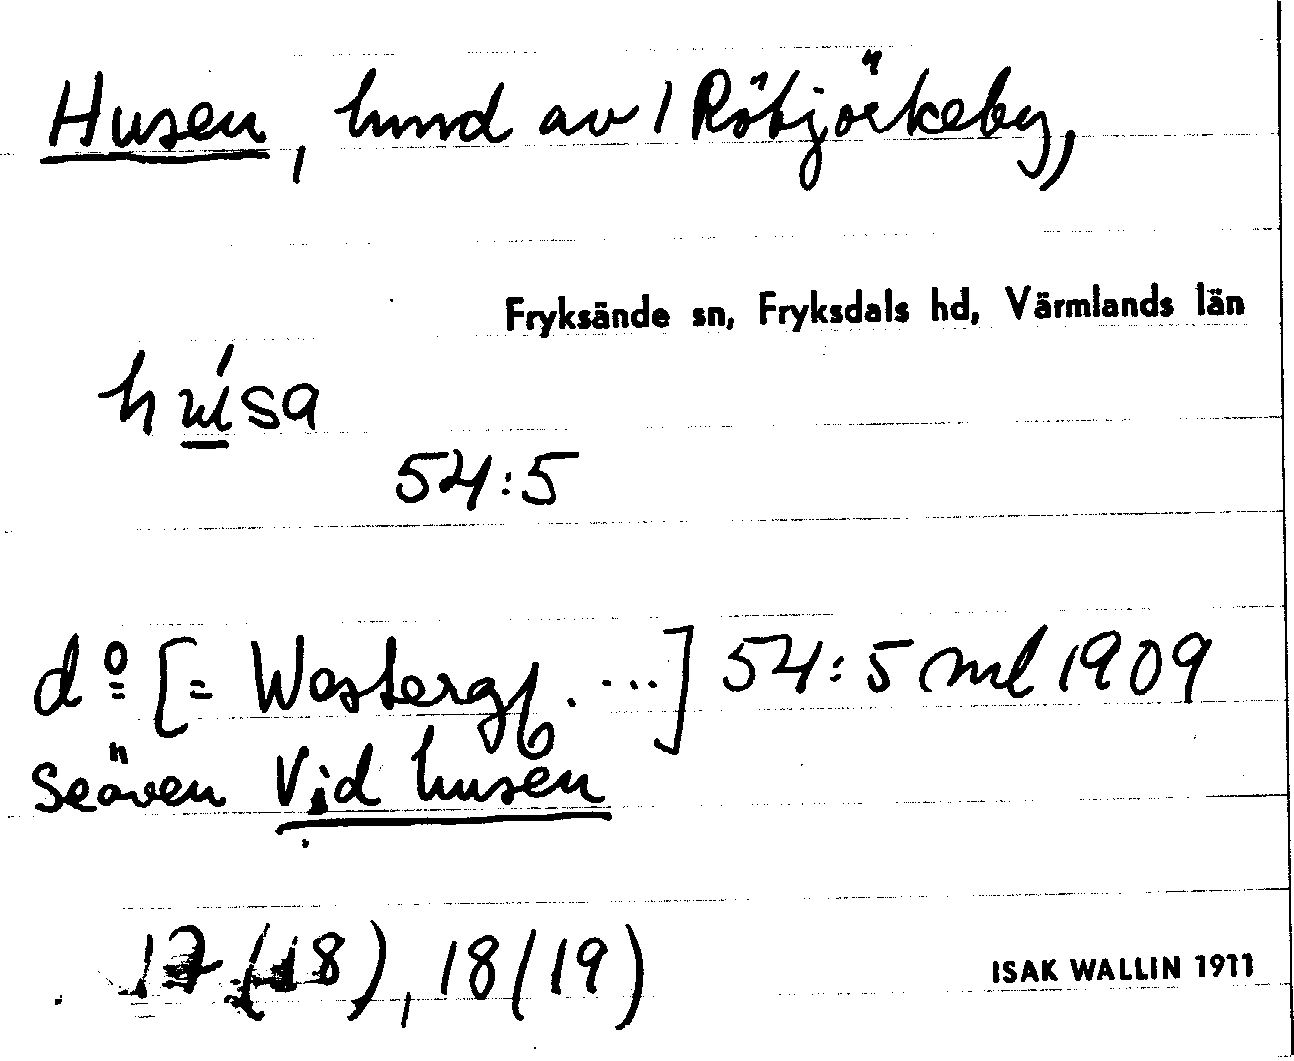 Husen, hmd av 1 Röbjörkeby,
Fryksände sn, Fryksdals hd, Värmlands län
husa
54:5
dº [= Westergr. ...] 54:5 ml 1909
Se även Vid husen
17 (18), 18 (19)
ISAK WALLIN 1911